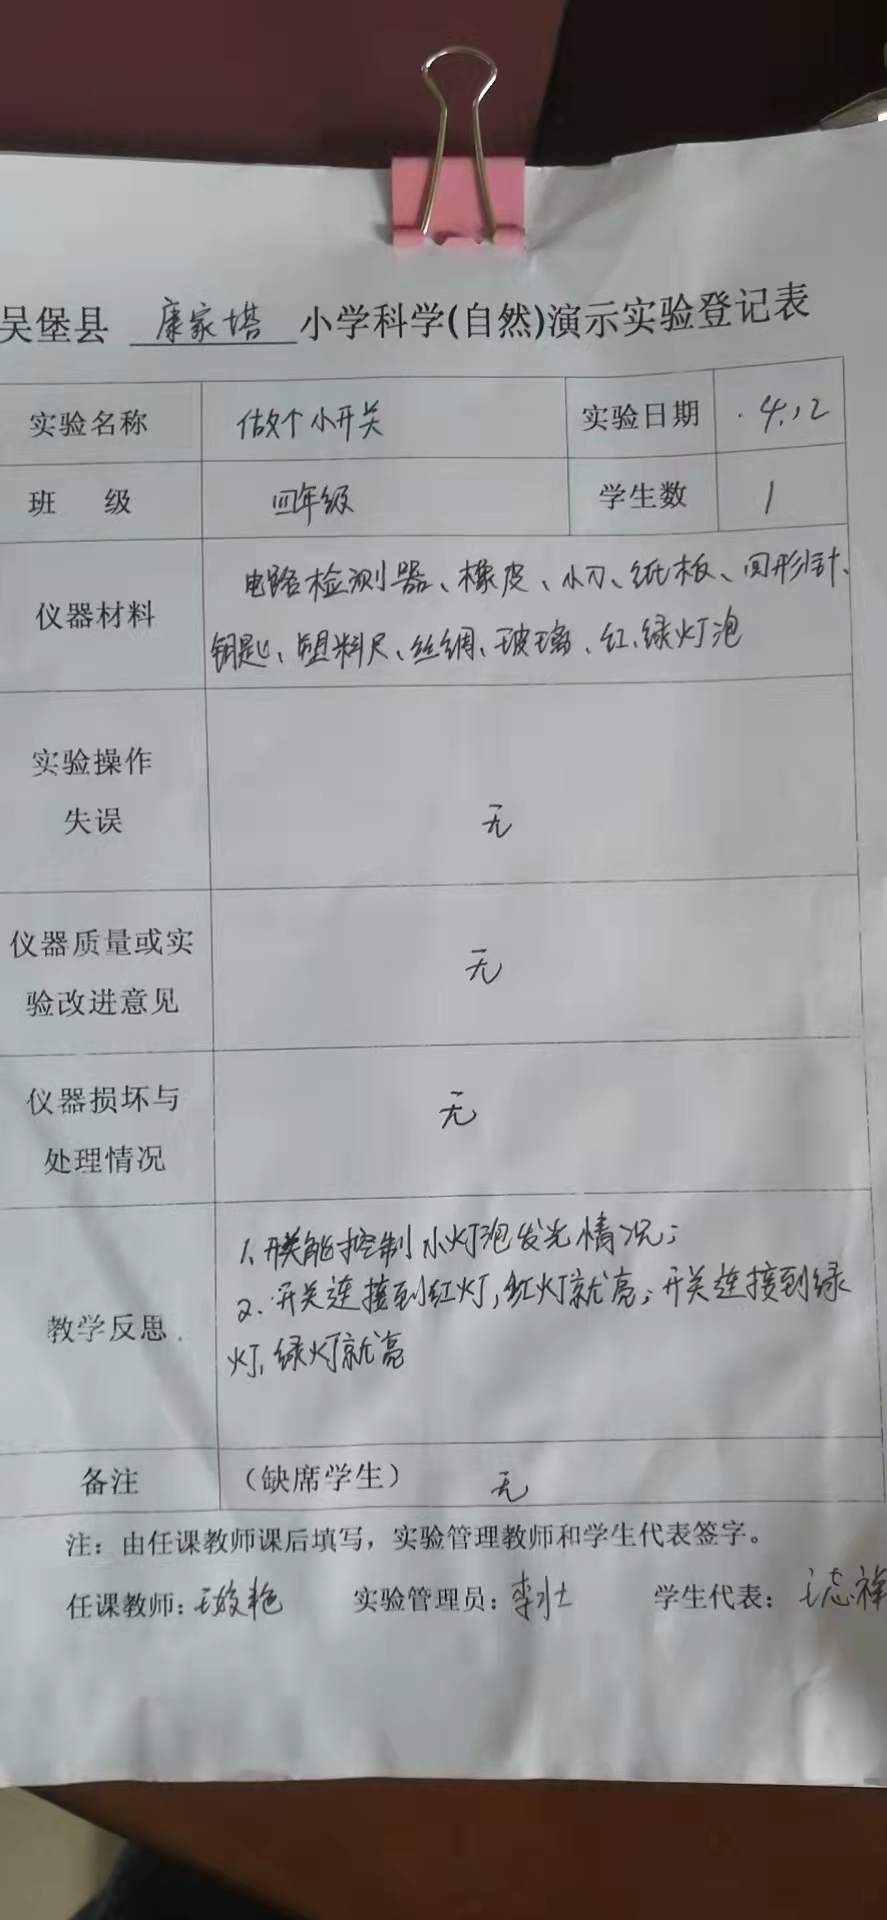 吴堡县 康家塔 小学科学(自然)演示实验登记表
实验名称 做个小开关 实验日期 4.12
班 级 四年级 学生数 1
仪器材料 电路检测器、橡皮、小刀、纸板、回形针、
钥匙、塑料尺、丝绸、玻璃、红、绿灯泡
实验操作
失误 无
仪器质量或实
验改进意见 无
仪器损坏与
处理情况 无
教学反思
1、开关能控制小灯泡发光情况；
2、开关连接到红灯，红灯就亮；开关连接到绿
灯，绿灯就亮
备注 （缺席学生） 无
注：由任课教师课后填写，实验管理教师和学生代表签字。
任课教师： 实验管理员： 学生代表：王志祥